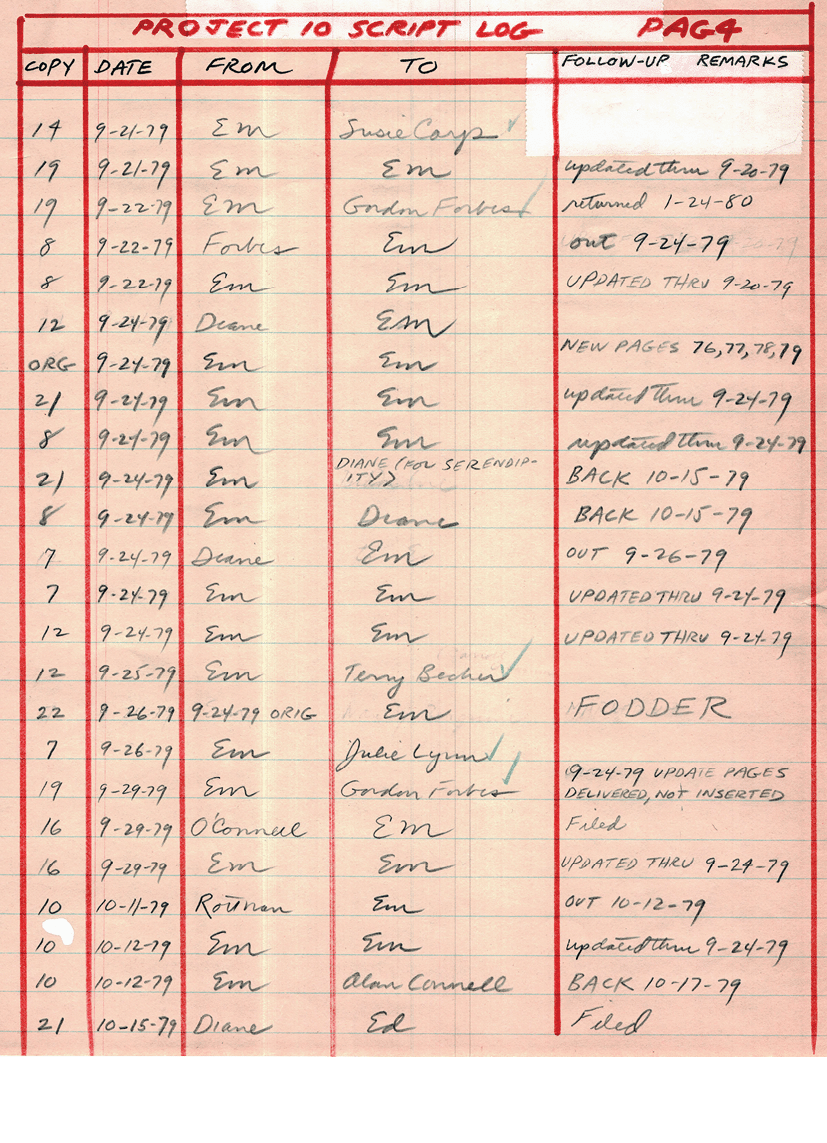 PROJECT 10 SCRIPT LOG PAG4
COPY DATE FROM TO FOLLOW-UP REMARKS
14 9-21-79 Em Susie Carp ✓
19 9-21-79 Em Em updated thru 9-20-79
19 9-22-79 Em Gordon Forbes ✓ returned 1-24-80
8 9-22-79 Forbes Em out 9-24-79
8 9-22-79 Em Em UPDATED THRU 9-20-79
12 9-24-79 Diane Em
NEW PAGES 76,77,78,79
ORG 9-24-79 Em Em
21 9-24-79 Em Em updated thru 9-24-79
8 9-24-79 Em Em updated thru 9-24-79
DIANE (FOR SERENDIP-
21 9-24-79 Em ITY) BACK 10-15-79
8 9-24-79 Em Diane BACK 10-15-79
7 9-24-79 Diane Em OUT 9-26-79
7 9-24-79 Em Em UPDATED THRU 9-24-79
12 9-24-79 Em Em UPDATED THRU 9-24-79
12 9-25-79 Em Terry Becher ✓
22 9-26-79 9-24-79 ORIG Em FODDER
7 9-26-79 Em Julie Lynn ✓
9-24-79 UPDATE PAGES
19 9-29-79 Em Gordon Forbes ✓ DELIVERED, NOT INSERTED
16 9-29-79 O'Connell Em Filed
16 9-29-79 Em Em UPDATED THRU 9-24-79
10 10-11-79 Rottman Em OUT 10-12-79
10 10-12-79 Em Em updated thru 9-24-79
10 10-12-79 Em Alan Connell BACK 10-17-79
21 10-15-79 Diane Ed Filed